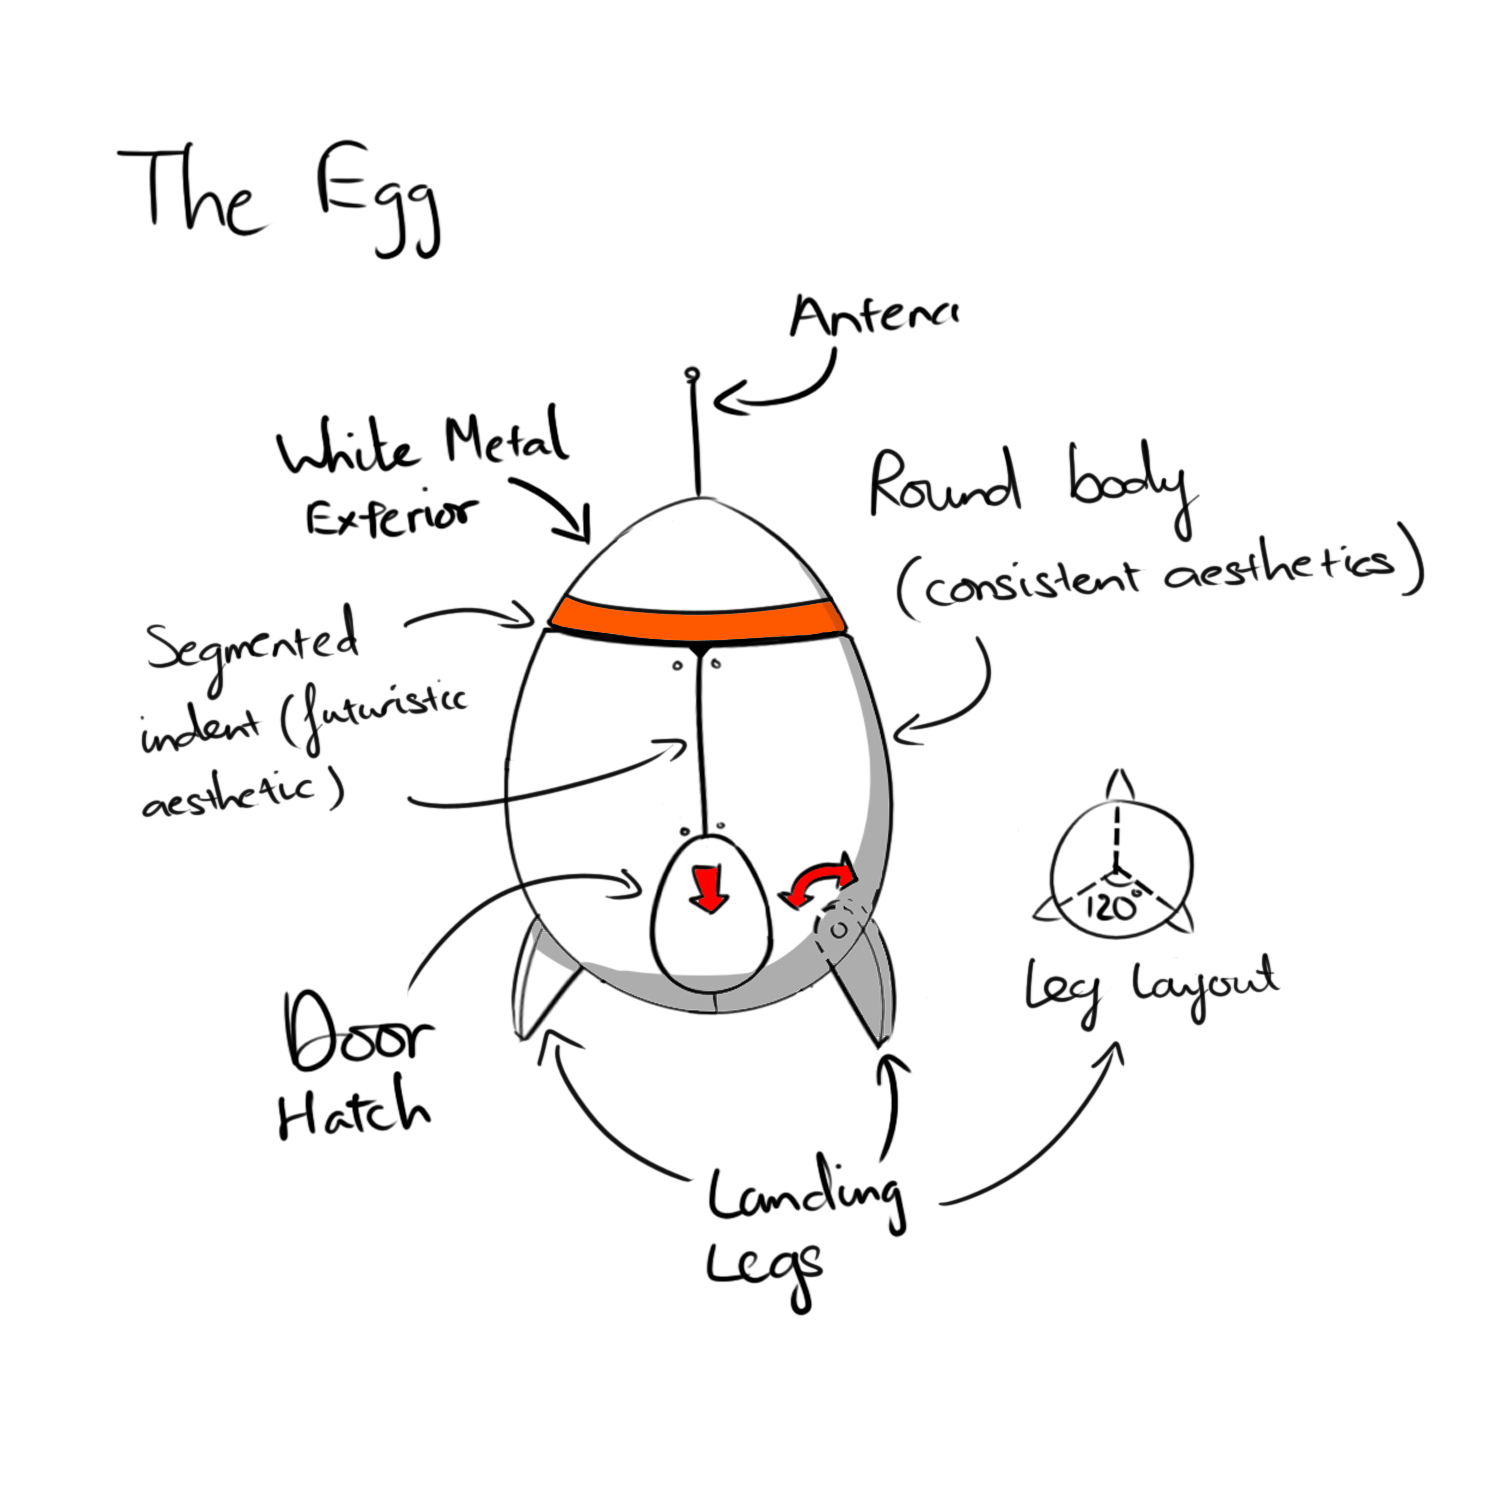 The Egg
Antena
White Metal
Exterior
Round body
(consistent aesthetics)
Segmented
indent (futuristic
aesthetic)
120°
Leg Layout
Door
Hatch
Landing
Legs